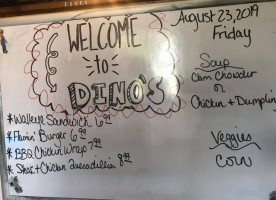 WELCOME
to
DINO'S
* Walleye Sandwich 6.99
* Flamin' Burger 6.99
* BBQ Chicken Wrap 7.99
* Steak + Chicken Quesadilla 8.99
August 23, 2019
Friday
Soup
Clam Chowder
or
Chicken & Dumpling
Veggies
Corn